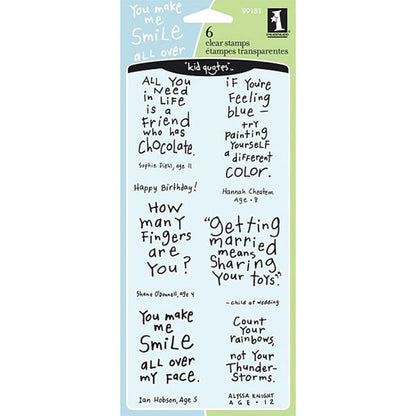 You make
me
Smile
all over
99181
6
clear stamps
étampes transparentes
"kid quotes"
ALL You
in Need
in Life
is a
Friend
who has
Chocolate.
Sophie Diehl, age 11
Happy Birthday!
How
many
Fingers
are
You?
Shane O'Donnell, age 4
You make
me
Smile
all over
my Face.
Ian Hobson, Age 5
if You're
Feeling
blue —
try
Painting
Yourself
a different
COLOR.
Hannah Cheatem
Age • 8
"Getting
married
means
Sharing
Your toys".
— child at wedding
Count
Your
rainbows,
not Your
Thunder-
Storms.
ALYSSA KNIGHT
AGE • 12